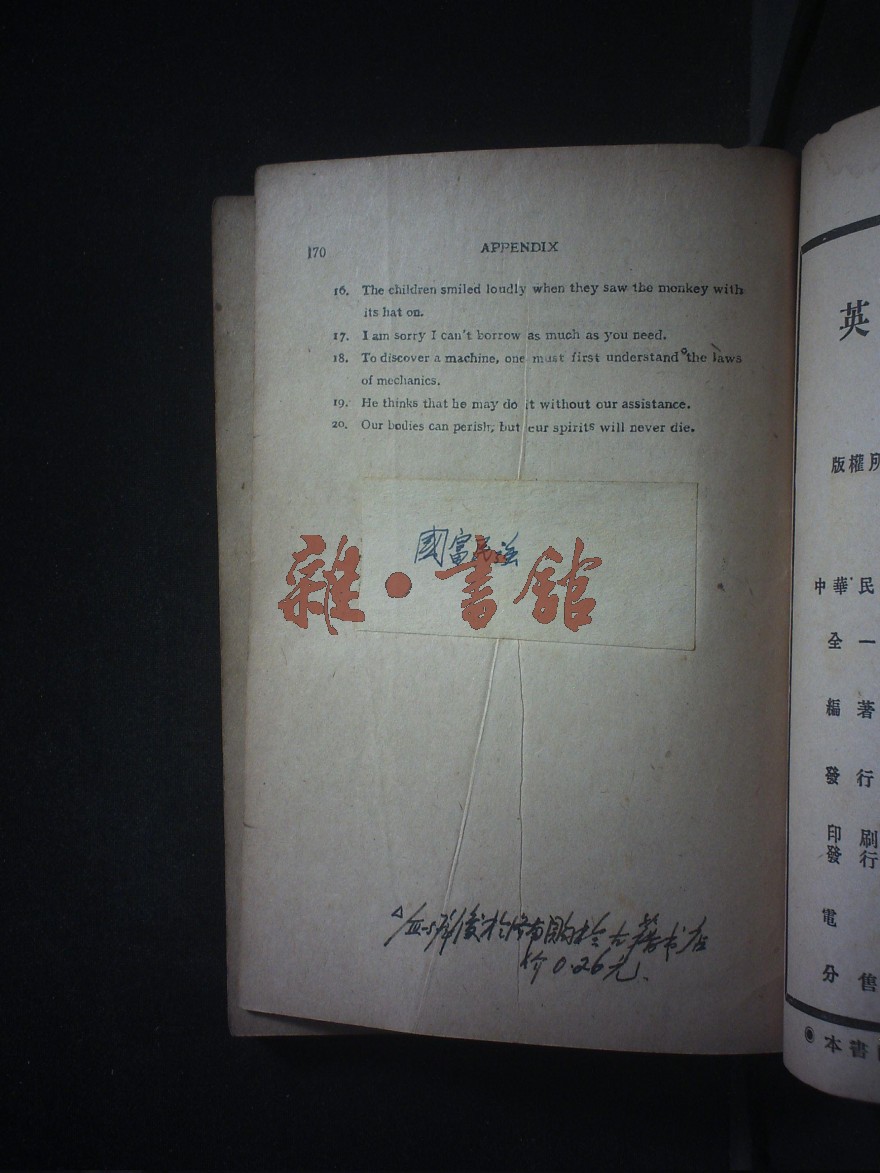 170
APPENDIX
16. The children smiled loudly when they saw the monkey with
its hat on.
17. I am sorry I can't borrow as much as you need.
18. To discover a machine, one must first understand the laws
of mechanics.
19. He thinks that he may do it without our assistance.
20. Our bodies can perish, but our spirits will never die.
國富民強
雜·書館
书店
价0.26元.
英
版權所
中華民
全一
編著
發行
印刷
發行
電
分售
◉本書